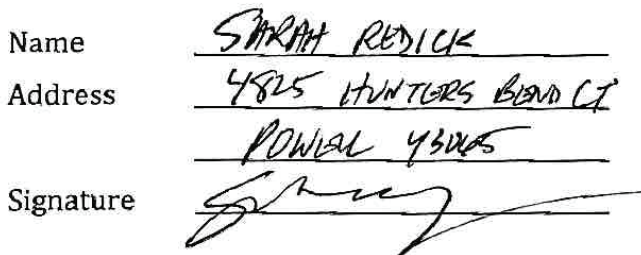 Name SARAH REDICK
Address 4825 HUNTERS BEND CT
POWELL 43065
Signature